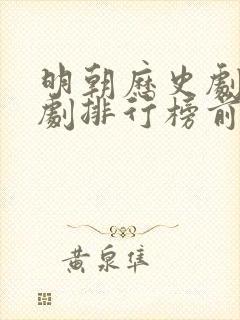 明朝歷史劇
劇排行榜前
黃泉隼